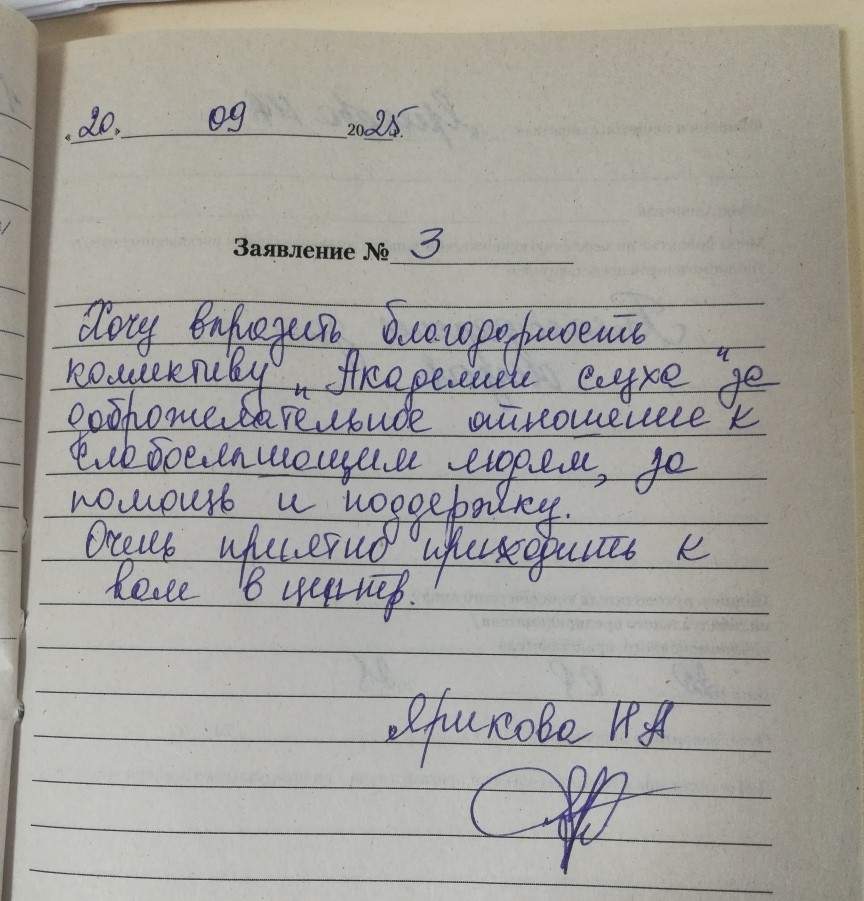 «20» 09 2025г.
Заявление № 3
Хочу выразить благодарность
коллективу „Академии слуха" за
доброжелательное отношение к
слабослышащим людям, за
помощь и поддержку.
Очень приятно приходить к
вам в центр.
Ярикова Н А